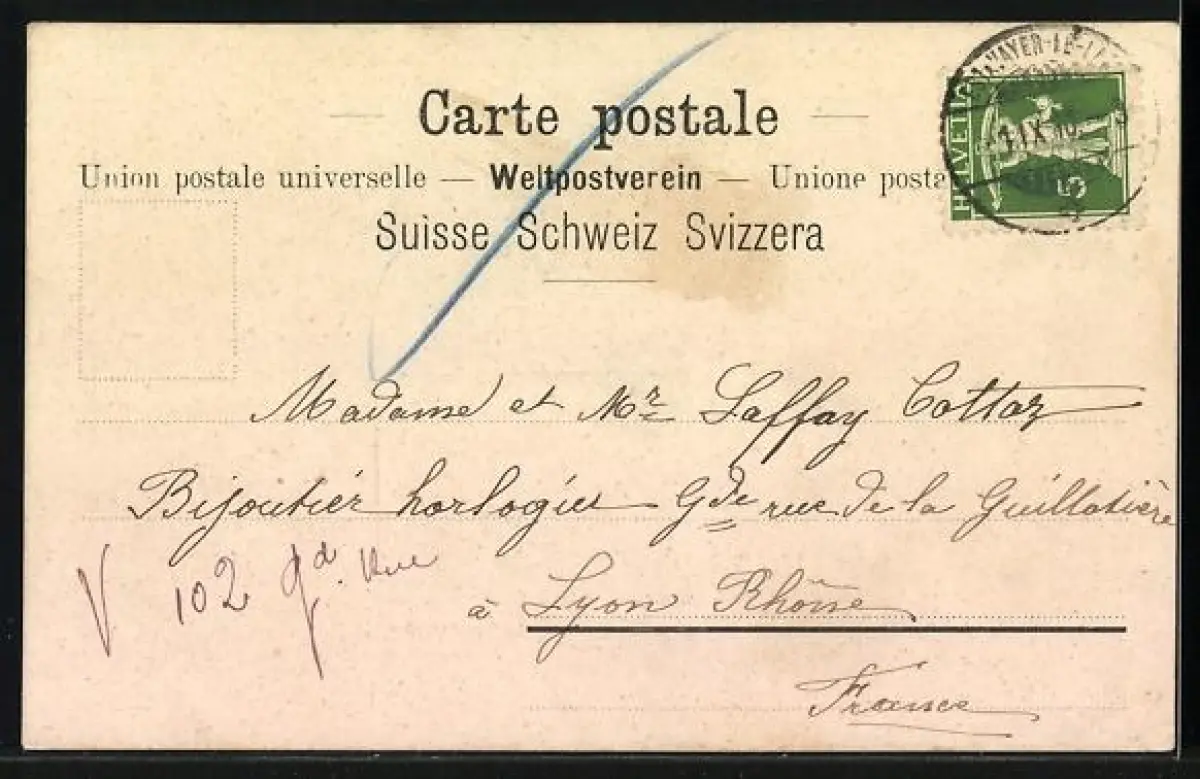 Carte postale
Union postale universelle — Weltpostverein — Unione posta
Suisse Schweiz Svizzera
HELVETIA
5
IX
Madame et Mr Laffay Cottaz
Bijoutier horlogier Gde rue de la Guillotière
102 gd. Rue
à Lyon Rhône
France